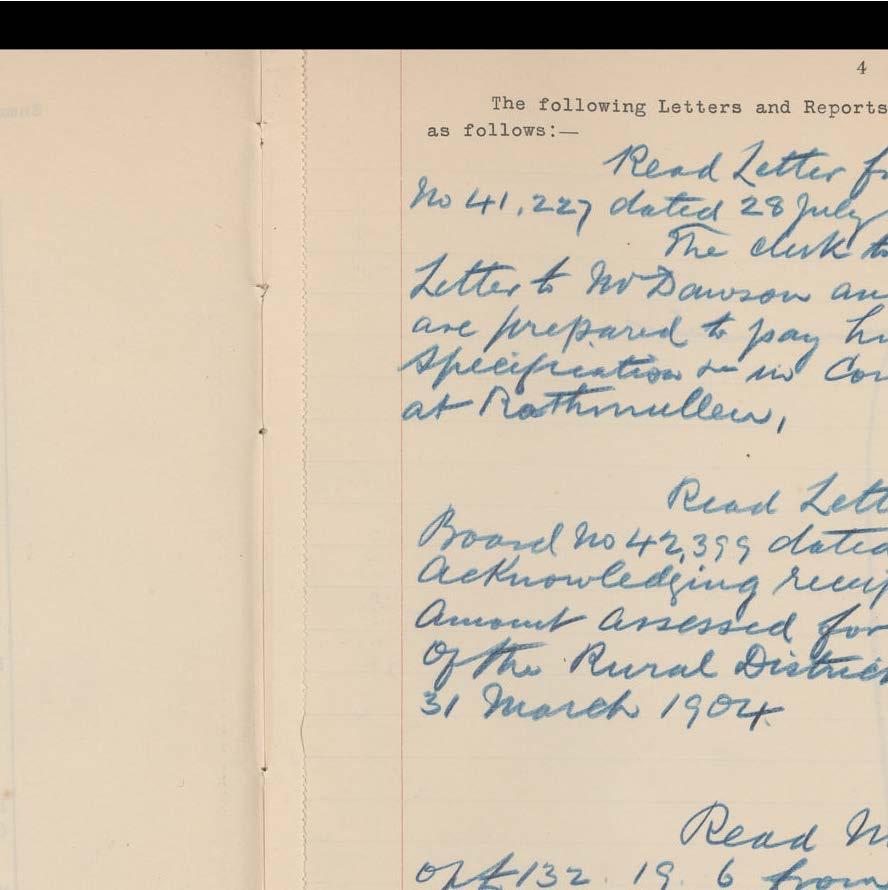 4
The following Letters and Reports
as follows:—
Read Letter
No 41,227 dated 28 July
The clerk to
Letter to Mr Dawson an
are prepared to pay hi
Specification & in Con
at Rathmullen,
Read Lett
Board No 42,399 dated
Acknowledging receip
Amount assessed for
Of the Rural District
31 March 1904
Read M
of £132. 19. 6 from